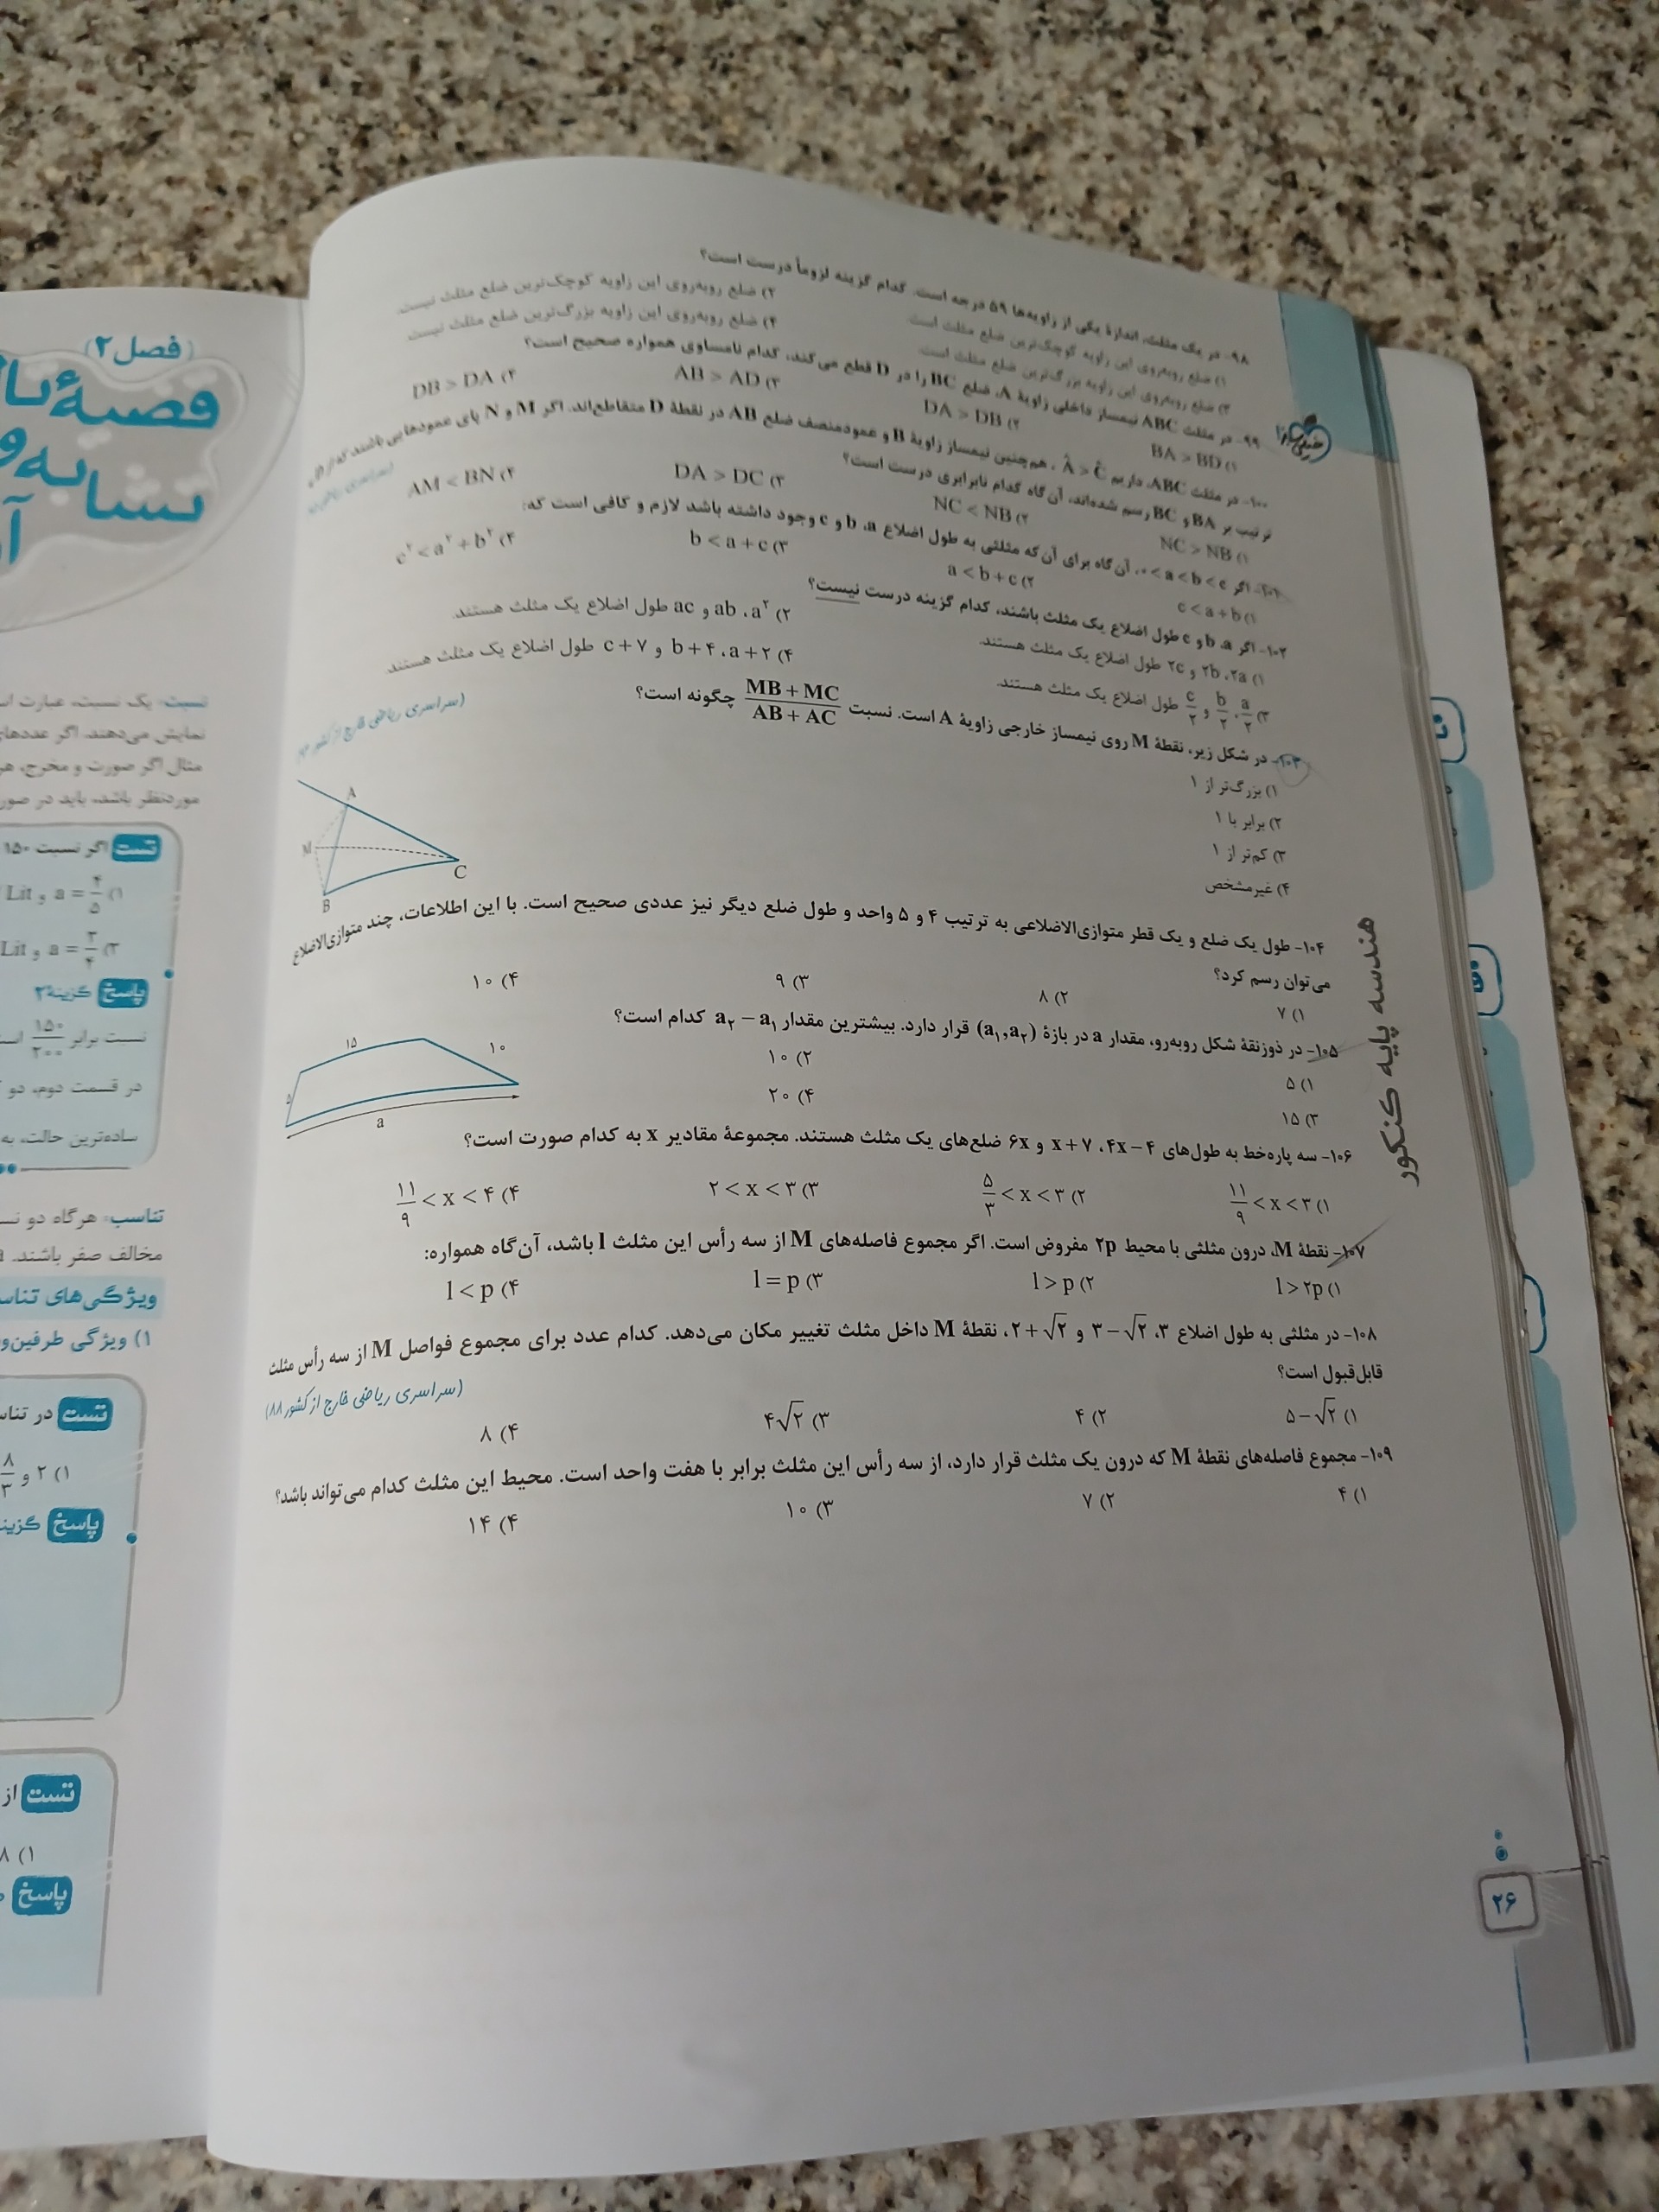 ۹۸- در یک مثلث، اندازهٔ یکی از زاویه‌ها ۵۹ درجه است. کدام گزینه لزوماً درست است؟
۱) ضلع روبه‌روی این زاویه کوچک‌ترین ضلع مثلث است. ۲) ضلع روبه‌روی این زاویه کوچک‌ترین ضلع مثلث نیست.
۳) ضلع روبه‌روی این زاویه بزرگ‌ترین ضلع مثلث است. ۴) ضلع روبه‌روی این زاویه بزرگ‌ترین ضلع مثلث نیست.
۹۹- در مثلث ABC نیمساز داخلی زاویهٔ A، ضلع BC را در D قطع می‌کند، کدام نامساوی همواره صحیح است؟
۱) BA > BD ۲) DA > DB ۳) AB > AD ۴) DB > DA
۱۰۰- در مثلث ABC، داریم Â > Ĉ. هم‌چنین نیمساز زاویهٔ B و عمودمنصف ضلع AB در نقطهٔ D متقاطع‌اند. اگر M و N پای عمودهایی باشند که از D به
ترتیب بر BA و BC رسم شده‌اند، آن‌گاه کدام نابرابری درست است؟
۱) NC > NB ۲) NC < NB ۳) DA > DC ۴) AM < BN
۱۰۱- اگر ۰ < a < b < c، آن‌گاه برای آن‌که مثلثی به طول اضلاع a، b و c وجود داشته باشد لازم و کافی است که:
۱) c < a + b ۲) a < b + c ۳) b < a + c ۴) c² < a² + b²
۱۰۲- اگر a، b و c طول اضلاع یک مثلث باشند، کدام گزینه درست نیست؟
۱) ۲a، ۲b و ۲c طول اضلاع یک مثلث هستند. ۲) a²، ab و ac طول اضلاع یک مثلث هستند.
۳) a/۲، b/۲ و c/۲ طول اضلاع یک مثلث هستند. ۴) a+۲، b+۴ و c+۷ طول اضلاع یک مثلث هستند.
۱۰۳- در شکل زیر، نقطهٔ M روی نیمساز خارجی زاویهٔ A است. نسبت (MB + MC)/(AB + AC) چگونه است؟
(سراسری ریاضی خارج از کشور
۱) بزرگ‌تر از ۱
۲) برابر با ۱
۳) کم‌تر از ۱
۴) غیرمشخص
A
M
B
C
۱۰۴- طول یک ضلع و یک قطر متوازی‌الاضلاعی به ترتیب ۴ و ۵ واحد و طول ضلع دیگر نیز عددی صحیح است. با این اطلاعات، چند متوازی‌الاضلاع
می‌توان رسم کرد؟
۱) ۷ ۲) ۸ ۳) ۹ ۴) ۱۰
۱۰۵- در ذوزنقهٔ شکل روبه‌رو، مقدار a در بازهٔ (a₁, a₂) قرار دارد. بیشترین مقدار a₂ − a₁ کدام است؟
۱) ۵ ۲) ۱۰
۳) ۱۵ ۴) ۲۰
۱۵
۱۰
۵
a
۱۰۶- سه پاره‌خط به طول‌های ۴x − ۴، x + ۷ و ۶x ضلع‌های یک مثلث هستند. مجموعهٔ مقادیر x به کدام صورت است؟
۱) ۱۱/۹ < x < ۳ ۲) ۵/۳ < x < ۳ ۳) ۲ < x < ۳ ۴) ۱۱/۹ < x < ۴
۱۰۷- نقطهٔ M، درون مثلثی با محیط ۲p مفروض است. اگر مجموع فاصله‌های M از سه رأس این مثلث l باشد، آن‌گاه همواره:
۱) l > ۲p ۲) l > p ۳) l = p ۴) l < p
۱۰۸- در مثلثی به طول اضلاع ۳، ۳ − √۲ و ۲ + √۲، نقطهٔ M داخل مثلث تغییر مکان می‌دهد. کدام عدد برای مجموع فواصل M از سه رأس مثلث
قابل‌قبول است؟
(سراسری ریاضی خارج از کشور ۸۸)
۱) ۵ − √۲ ۲) ۴ ۳) ۴√۲ ۴) ۸
۱۰۹- مجموع فاصله‌های نقطهٔ M که درون یک مثلث قرار دارد، از سه رأس این مثلث برابر با هفت واحد است. محیط این مثلث کدام می‌تواند باشد؟
۱) ۴ ۲) ۷ ۳) ۱۰ ۴) ۱۴
هندسه پایه کنکور
۲۶
(فصل ۲)
قضیهٔ
تشابه و
نسبت: یک نسبت، عبارت
نمایش می‌دهند. اگر عددهای
مثال اگر صورت و مخرج، هر
موردنظر باشد، باید در صور
تست اگر نسبت ۱۵۰
۱) a = ۴/۵ و Lit
۳) a = ۳/۴ و Lit
پاسخ گزینهٔ ۳
نسبت برابر ۱۵۰/۲۰۰
در قسمت دوم، دو
ساده‌ترین حالت، به
تناسب: هرگاه دو
مخالف صفر باشند.
ویژگی‌های
۱) ویژگی طرفین
تست در
۱) ۲ و ۸/۳
پاسخ
تست از
۱) ۸
پاسخ